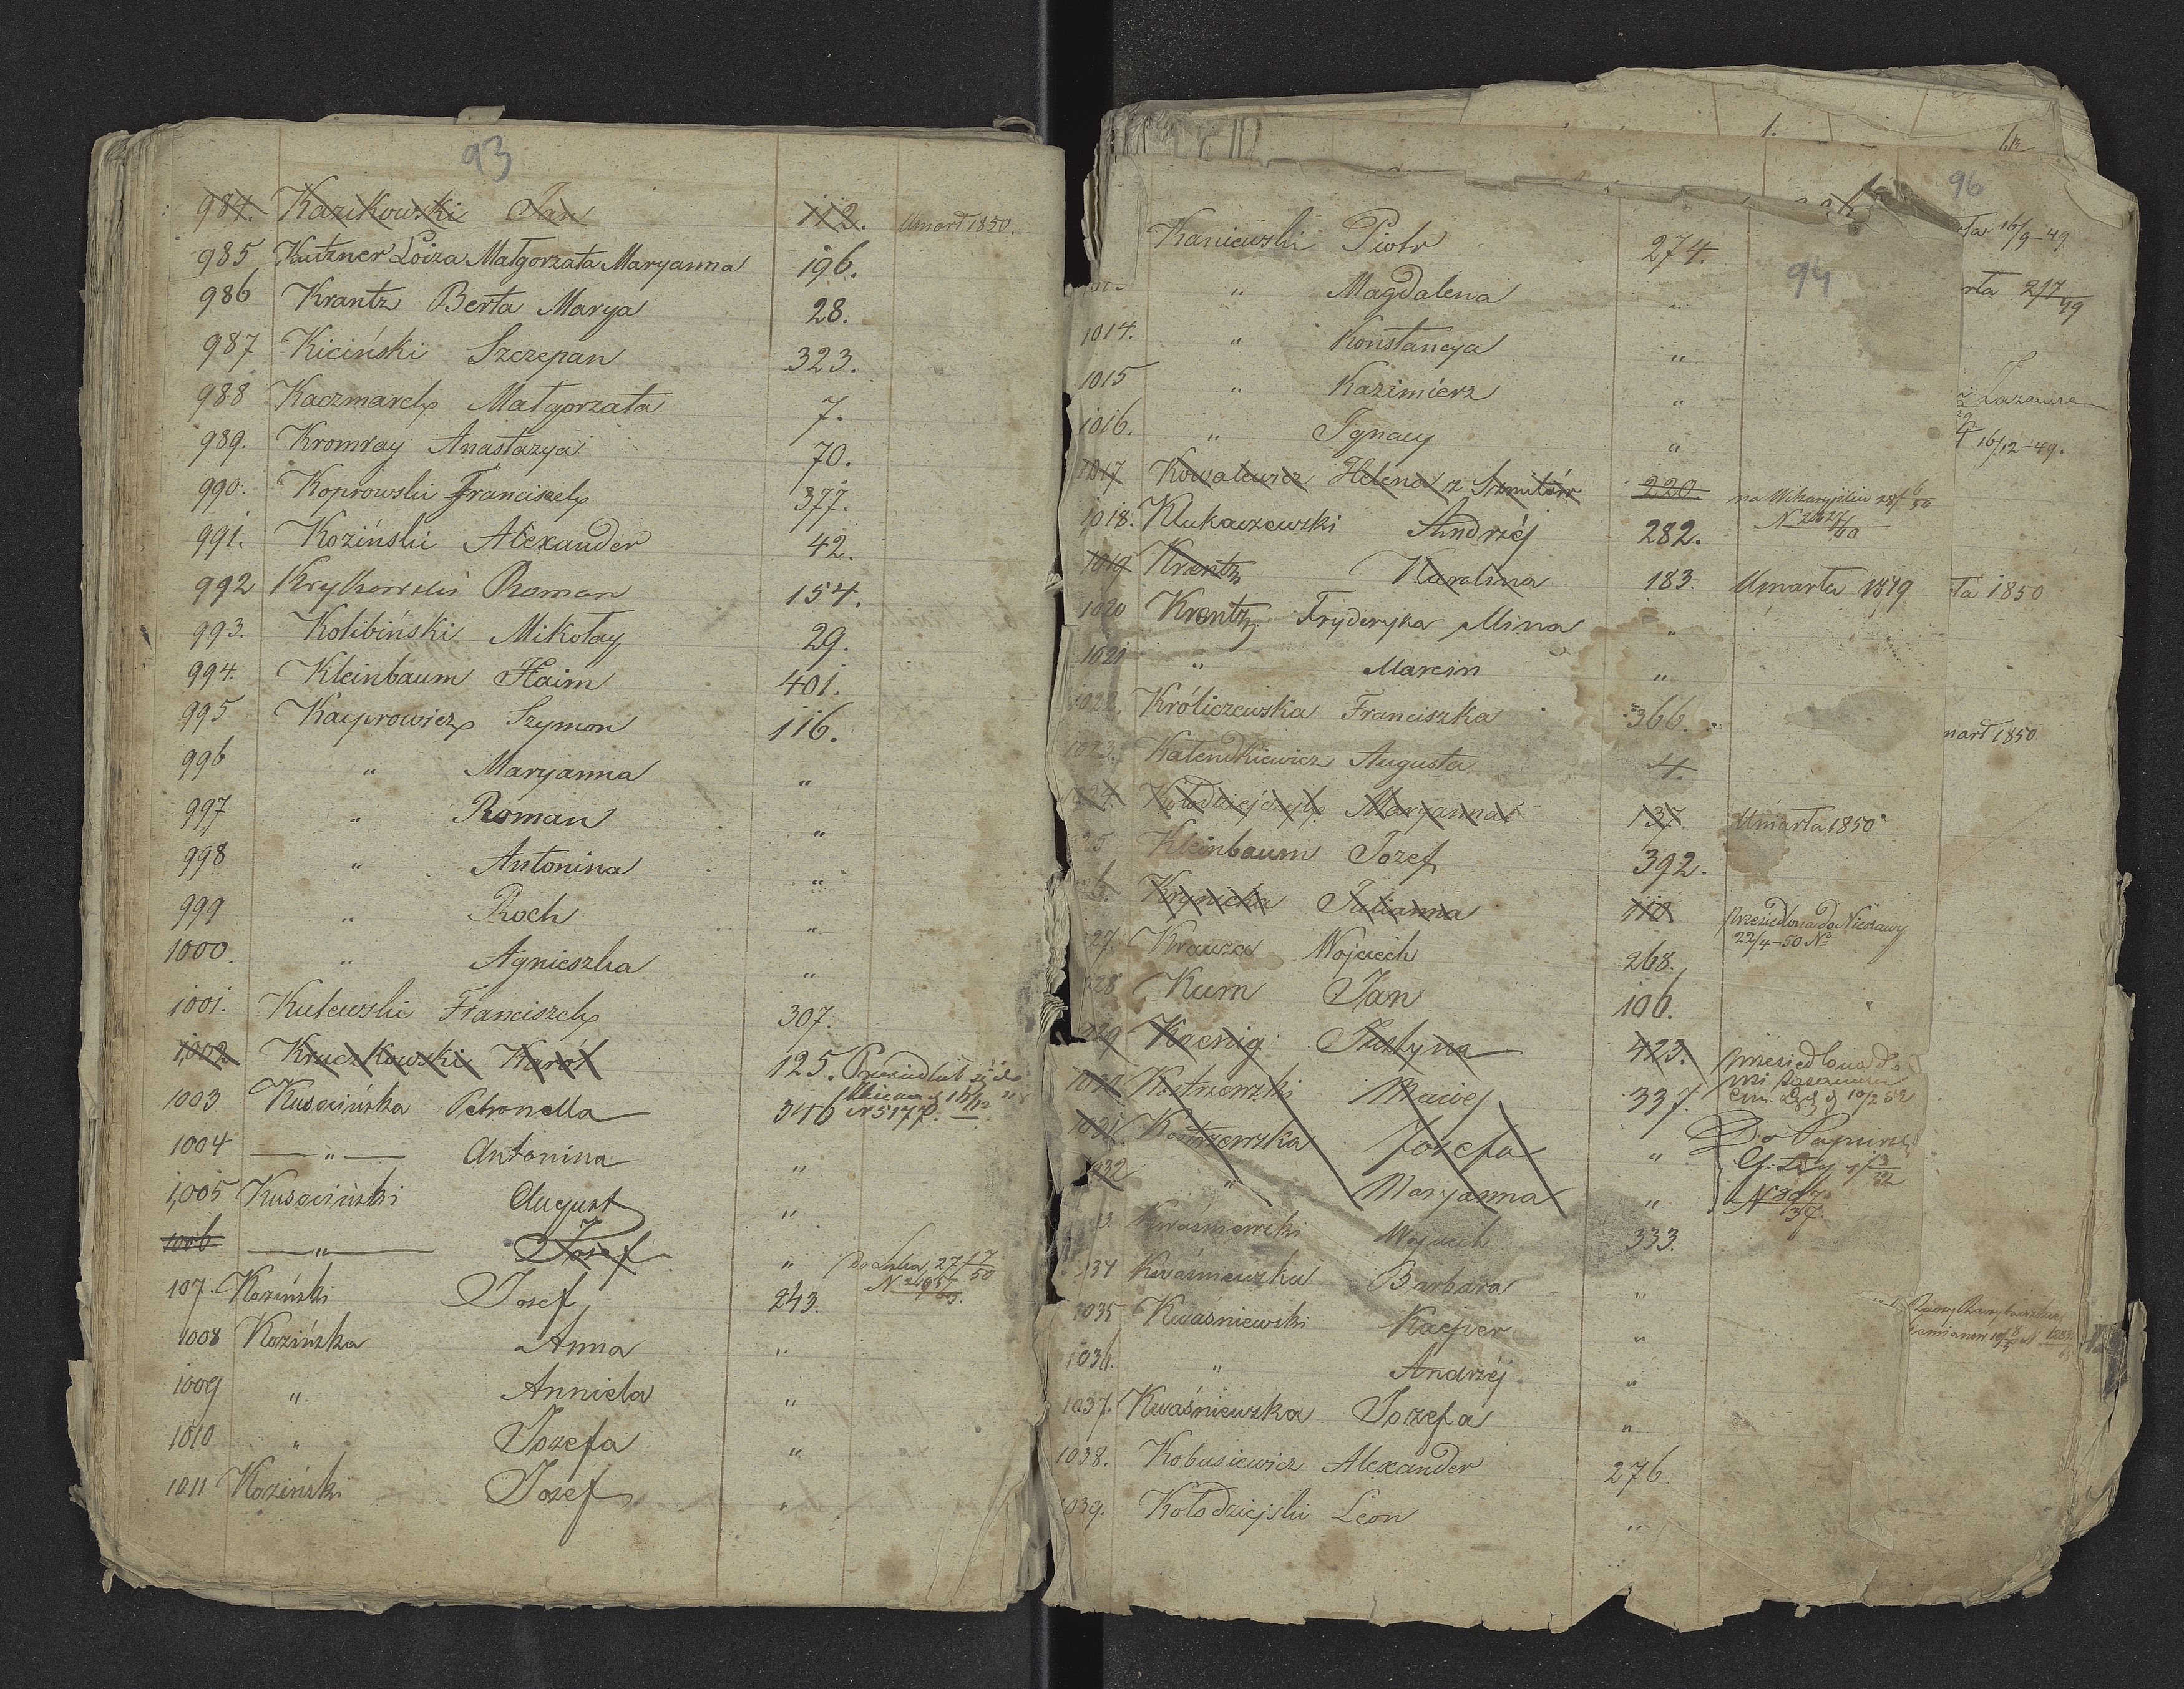 93
984. Kazikowski Jan 112. Umarł 1850.
985 Kutzner Loiza Małgorzata Maryanna 196.
986 Krantz Berta Marya 28.
987 Kiciński Szczepan 323.
988 Kaczmarek Małgorzata 7.
989. Kromray Anastazya 70.
990. Koprowski Franciszek 377.
991. Koziński Alexander 42.
992 Krykowski Roman 154.
993. Kolibiński Mikołay 29.
994. Kleinbaum Haim 401.
995 Kacprowicz Szymon 116.
996 " Maryanna "
997 " Roman "
998 " Antonina "
999 " Roch "
1000. " Agnieszka "
1001. Kulewski Franciszek 307.
1,002 Kruczkowski Karól 125. Przesiedlił się do
1003 Kusocińska Petronella 316 N 5177
1004 — " — Antonina "
1,005 Kusociński August "
1006 — " — Josef " do 27/7 50
107. Koziński Josef 243.
1008 Kozińska Anna "
1009 " Anniela "
1010 " Jozefa "
1011 Koziński Josef "
96
94
Kaniewski Piotr 274. rła 16/9-49
" Magdalena " rła 2/7 49
1014. " Konstancya "
1015 " Kazimierz "
1016. " Ignacy " 16/12-49.
1017 Kowalewicz Helena z Szmitów 220.
1018. Klukaczewski Andrzéj 282.
1019 Krentz Karolina 183. Umarła 1849 ła 1850
1020 Krentz Fryderyka Mina "
1021 " Marcin "
1022. Króliczewska Franciszka 366. marł 1850
1023. Kalendkiewicz Augusta 4.
1024. Kołodziejczyk Maryanna 137. Umarła 1850
25 Kleinbaum Jozef 392.
6. Krynicka Julianna 110 przesiedlona do Nieszawy
22/4-50 No
27. Krauza Wojciech 268.
28 Kum Jan 106.
29 Koenig Justyna 423. przesiedlona do
1030 Kostrzewski Maciej 337.
1031 Kostrzewska Jozefa "
1032 " Maryanna "
33. Kwaśniewski Wojciech 333.
34 Kwaśniewska Barbara "
1035 Kwaśniewski Kacper "
1036. " Andrzéj "
1037. Kwaśniewska Jozefa "
1038. Kobusiewicz Alexander 276.
1039. Kołodziejski Leon "